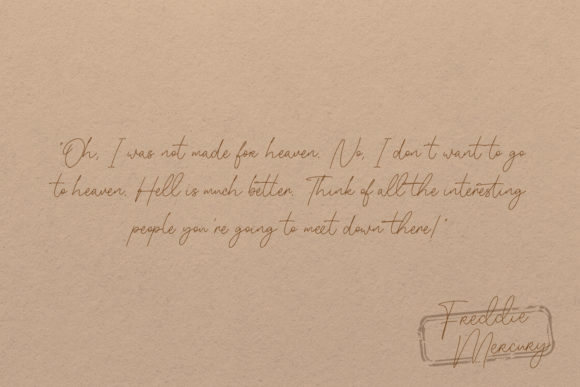 "Oh, I was not made for heaven. No, I don't want to go
to heaven. Hell is much better. Think of all the interesting
people you're going to meet down there!"
Freddie
Mercury